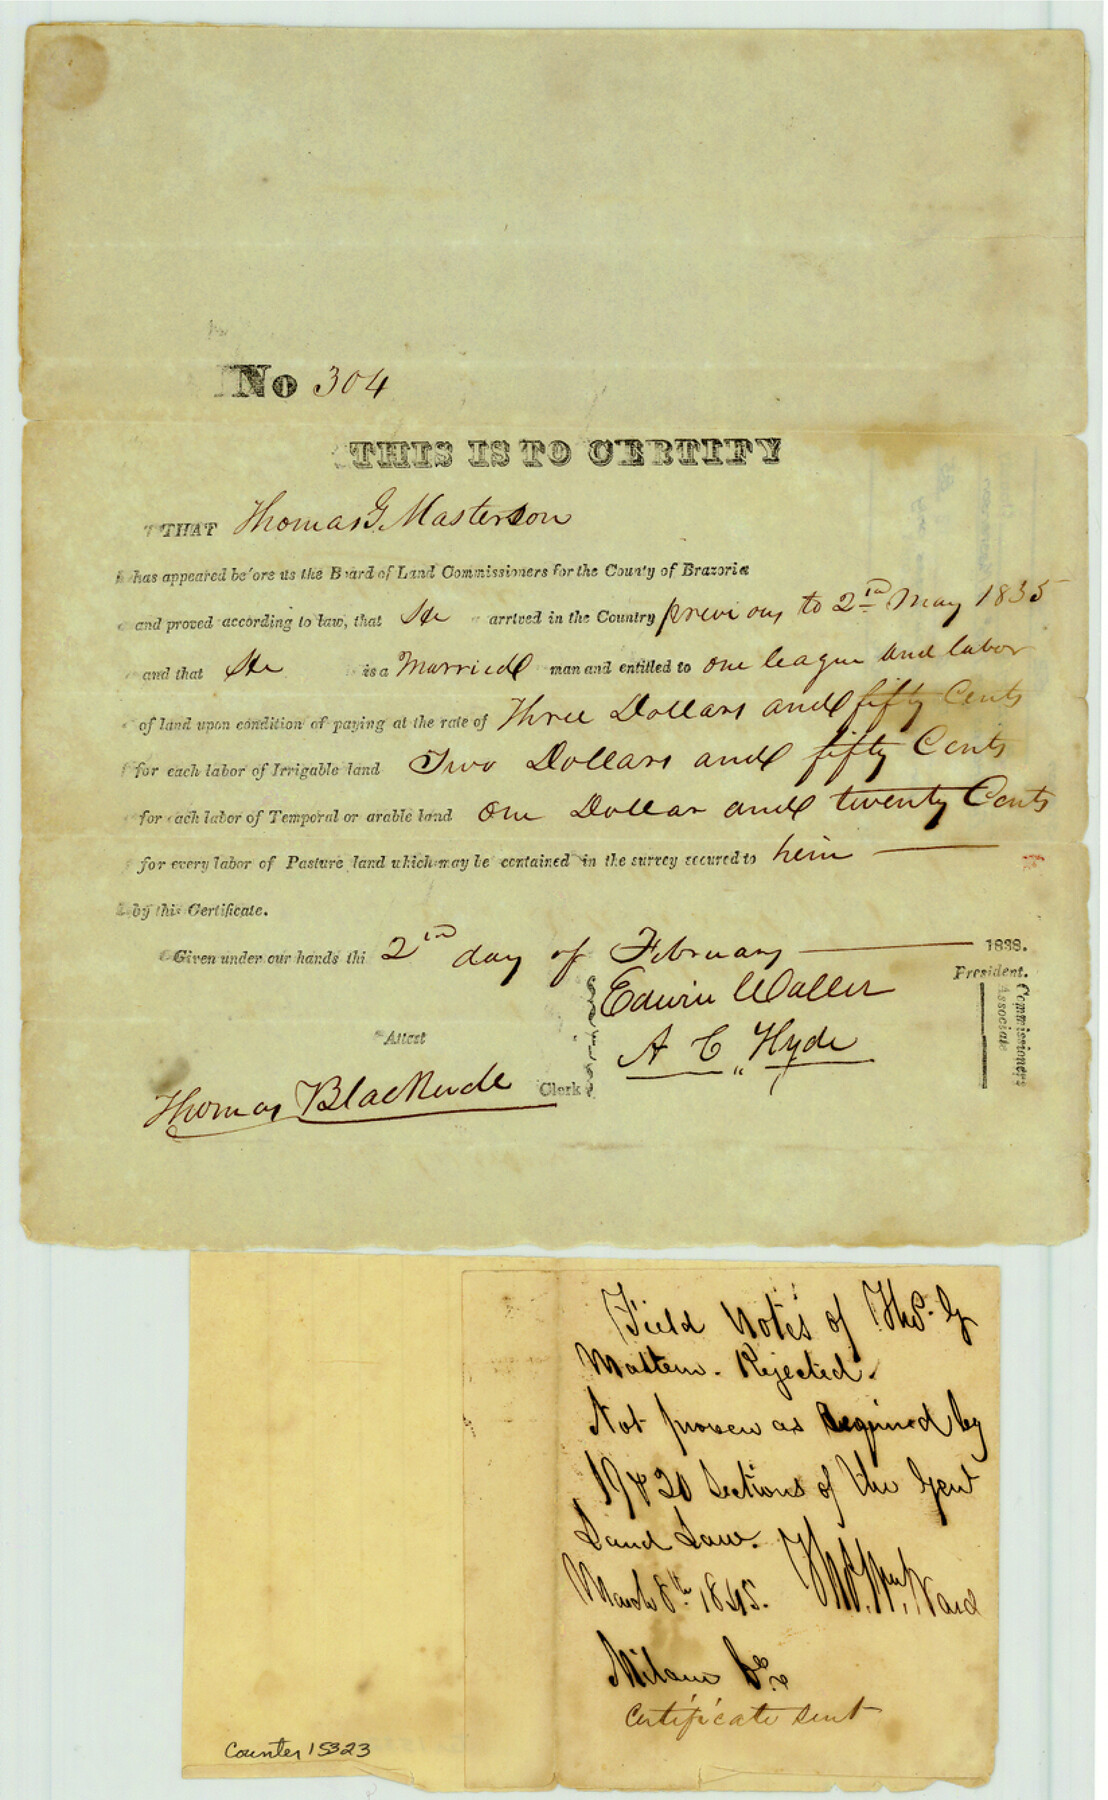 No 304
THIS IS TO CERTIFY
THAT Thomas G. Masterson
has appeared before us the Board of Land Commissioners for the County of Brazoria
and proved according to law, that He arrived in the Country previous to 2nd May 1835
and that He is a Married man and entitled to one league and labor
of land upon condition of paying at the rate of Three Dollars and fifty Cents
for each labor of Irrigable land Two Dollars and fifty Cents
for each labor of Temporal or arable land one Dollar and twenty Cents
for every labor of Pasture land which may be contained in the survey secured to him
by this Certificate.
Given under our hands thi 2nd day of February 1838.
Edwin Waller President.
Attest
A C Hyde
Associate
Commissioners
Thomas Blackende Clerk
Field Notes of Thos. G
Mastern. Rejected.
Not proven as required by
19 & 20 Sections of the Genl
Land Law.
March 8th 1845. Thos. Wm. Ward
Milam Co.
Certificate sent
Counter 15323